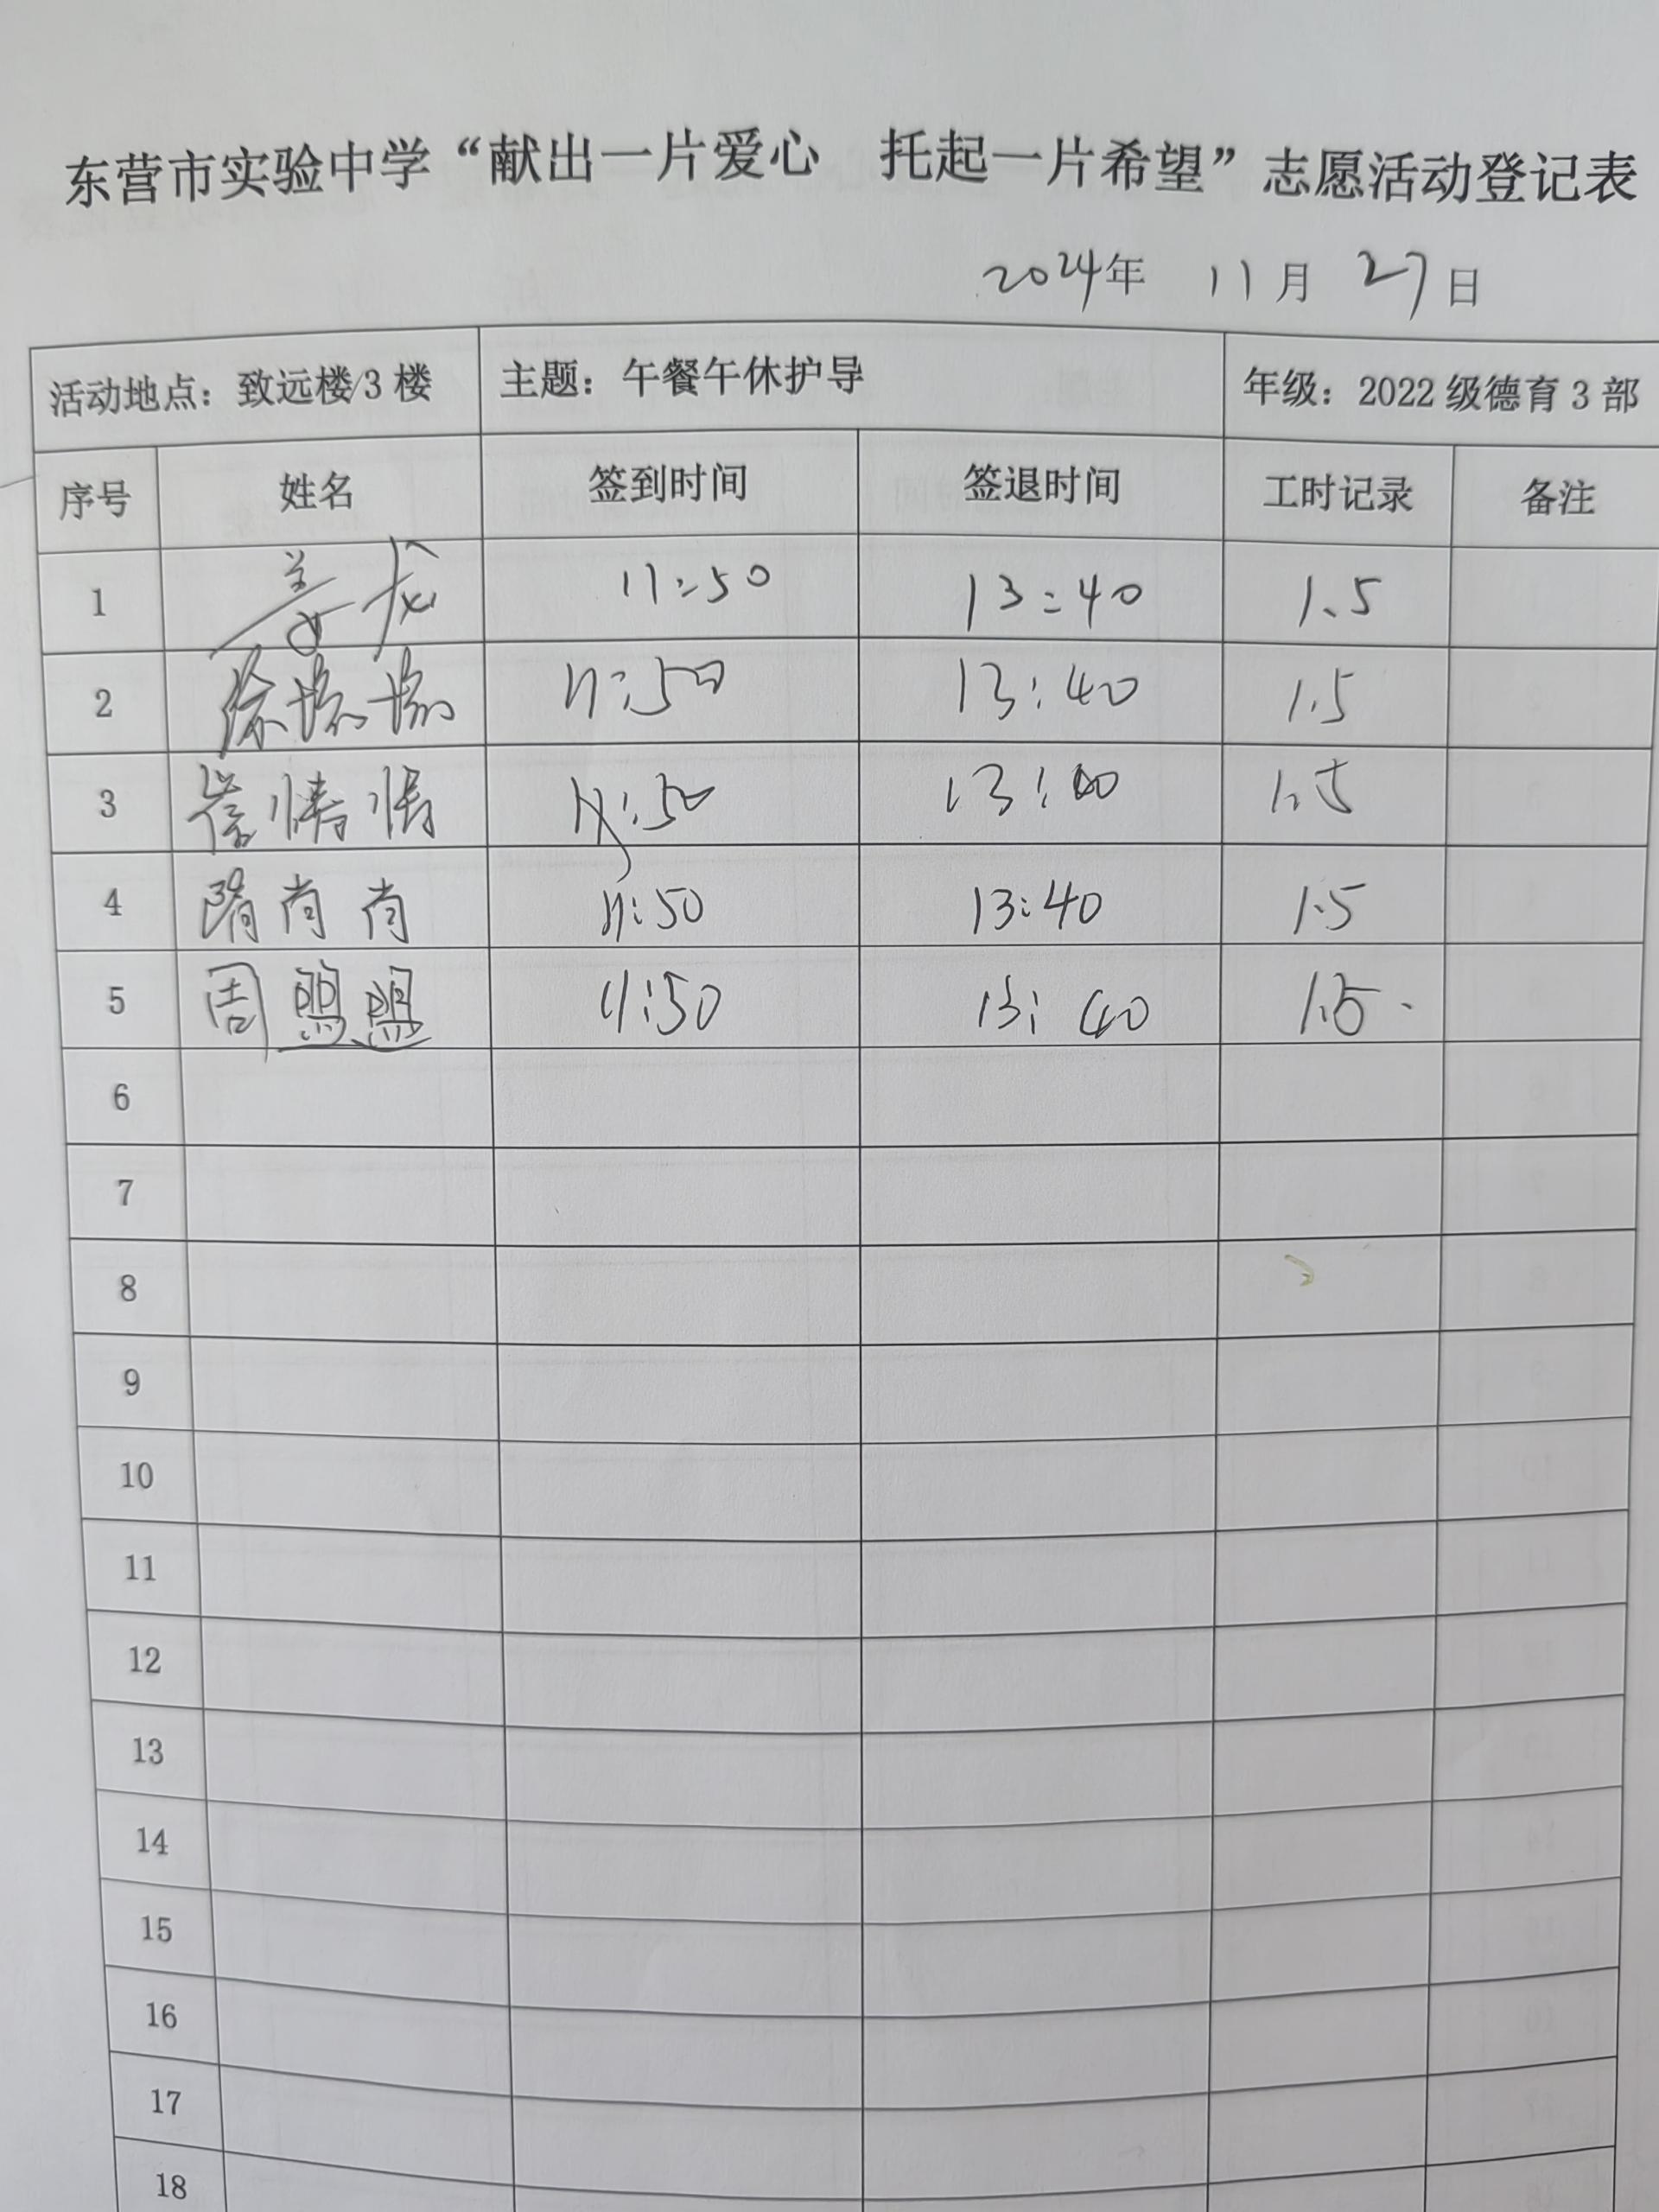 东营市实验中学“献出一片爱心 托起一片希望”志愿活动登记表
2024年 11月 27日
活动地点：致远楼/3楼 主题：午餐午休护导 年级：2022级德育3部
序号 姓名 签到时间 签退时间 工时记录 备注
1 姜龙 11:50 13:40 1.5
2 徐 11:50 13:40 1.5
3 崔情情 11:50 13:40 1.5
4 隋尚尚 11:50 13:40 1.5
5 周盟盟 11:50 13:40 1.5.
6
7
8
9
10
11
12
13
14
15
16
17
18